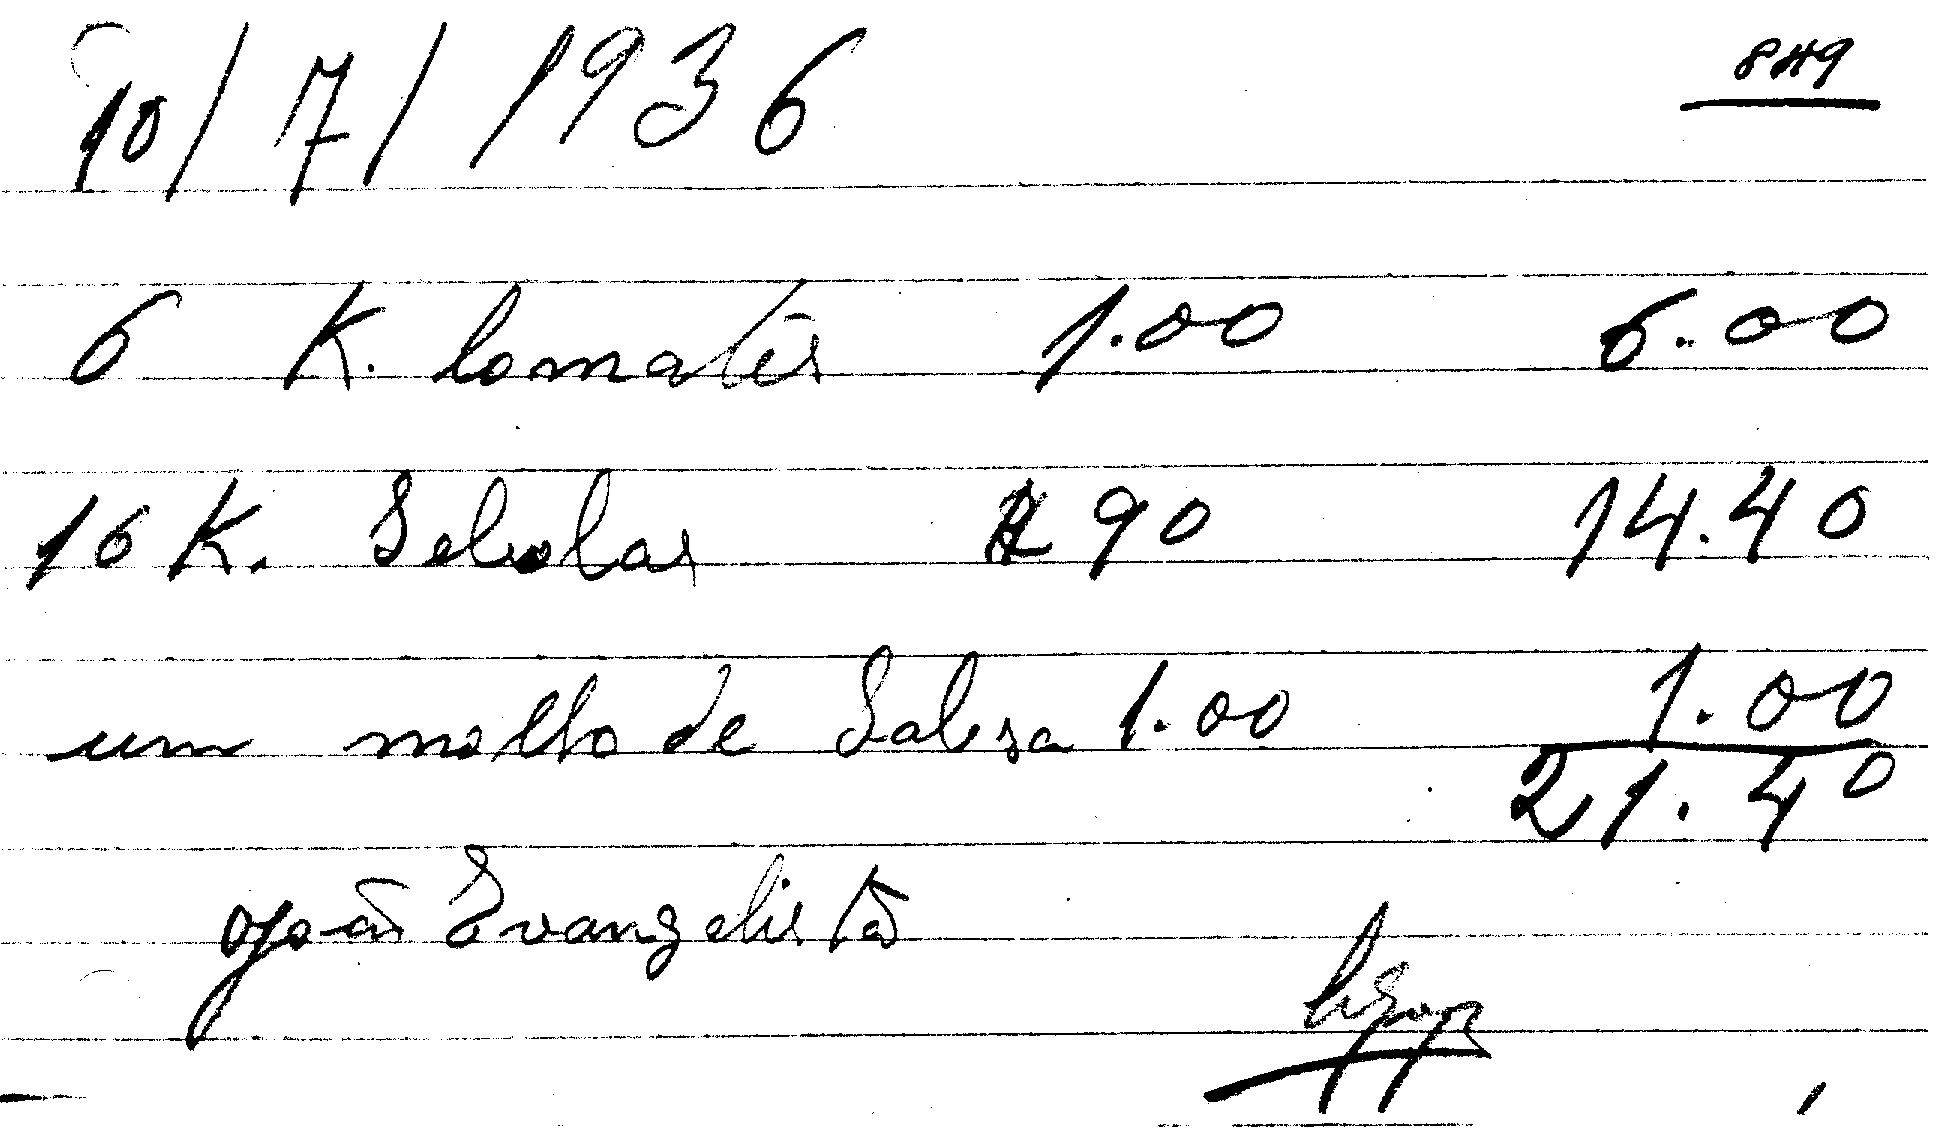 10/7/1936 849
6 K. tomatês 1.00 6.00
16 K. Sebolas 90 14.40
um molho de Salsa 1.00 1.00
21.40
João Evangelista